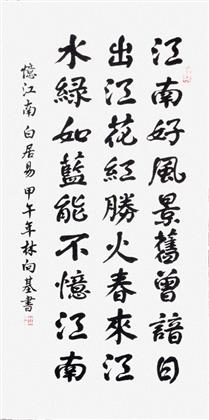 江南好風景舊曾諳日
出江花紅勝火春來江
水綠如藍能不憶江南
憶江南 白居易 甲午年林向基書